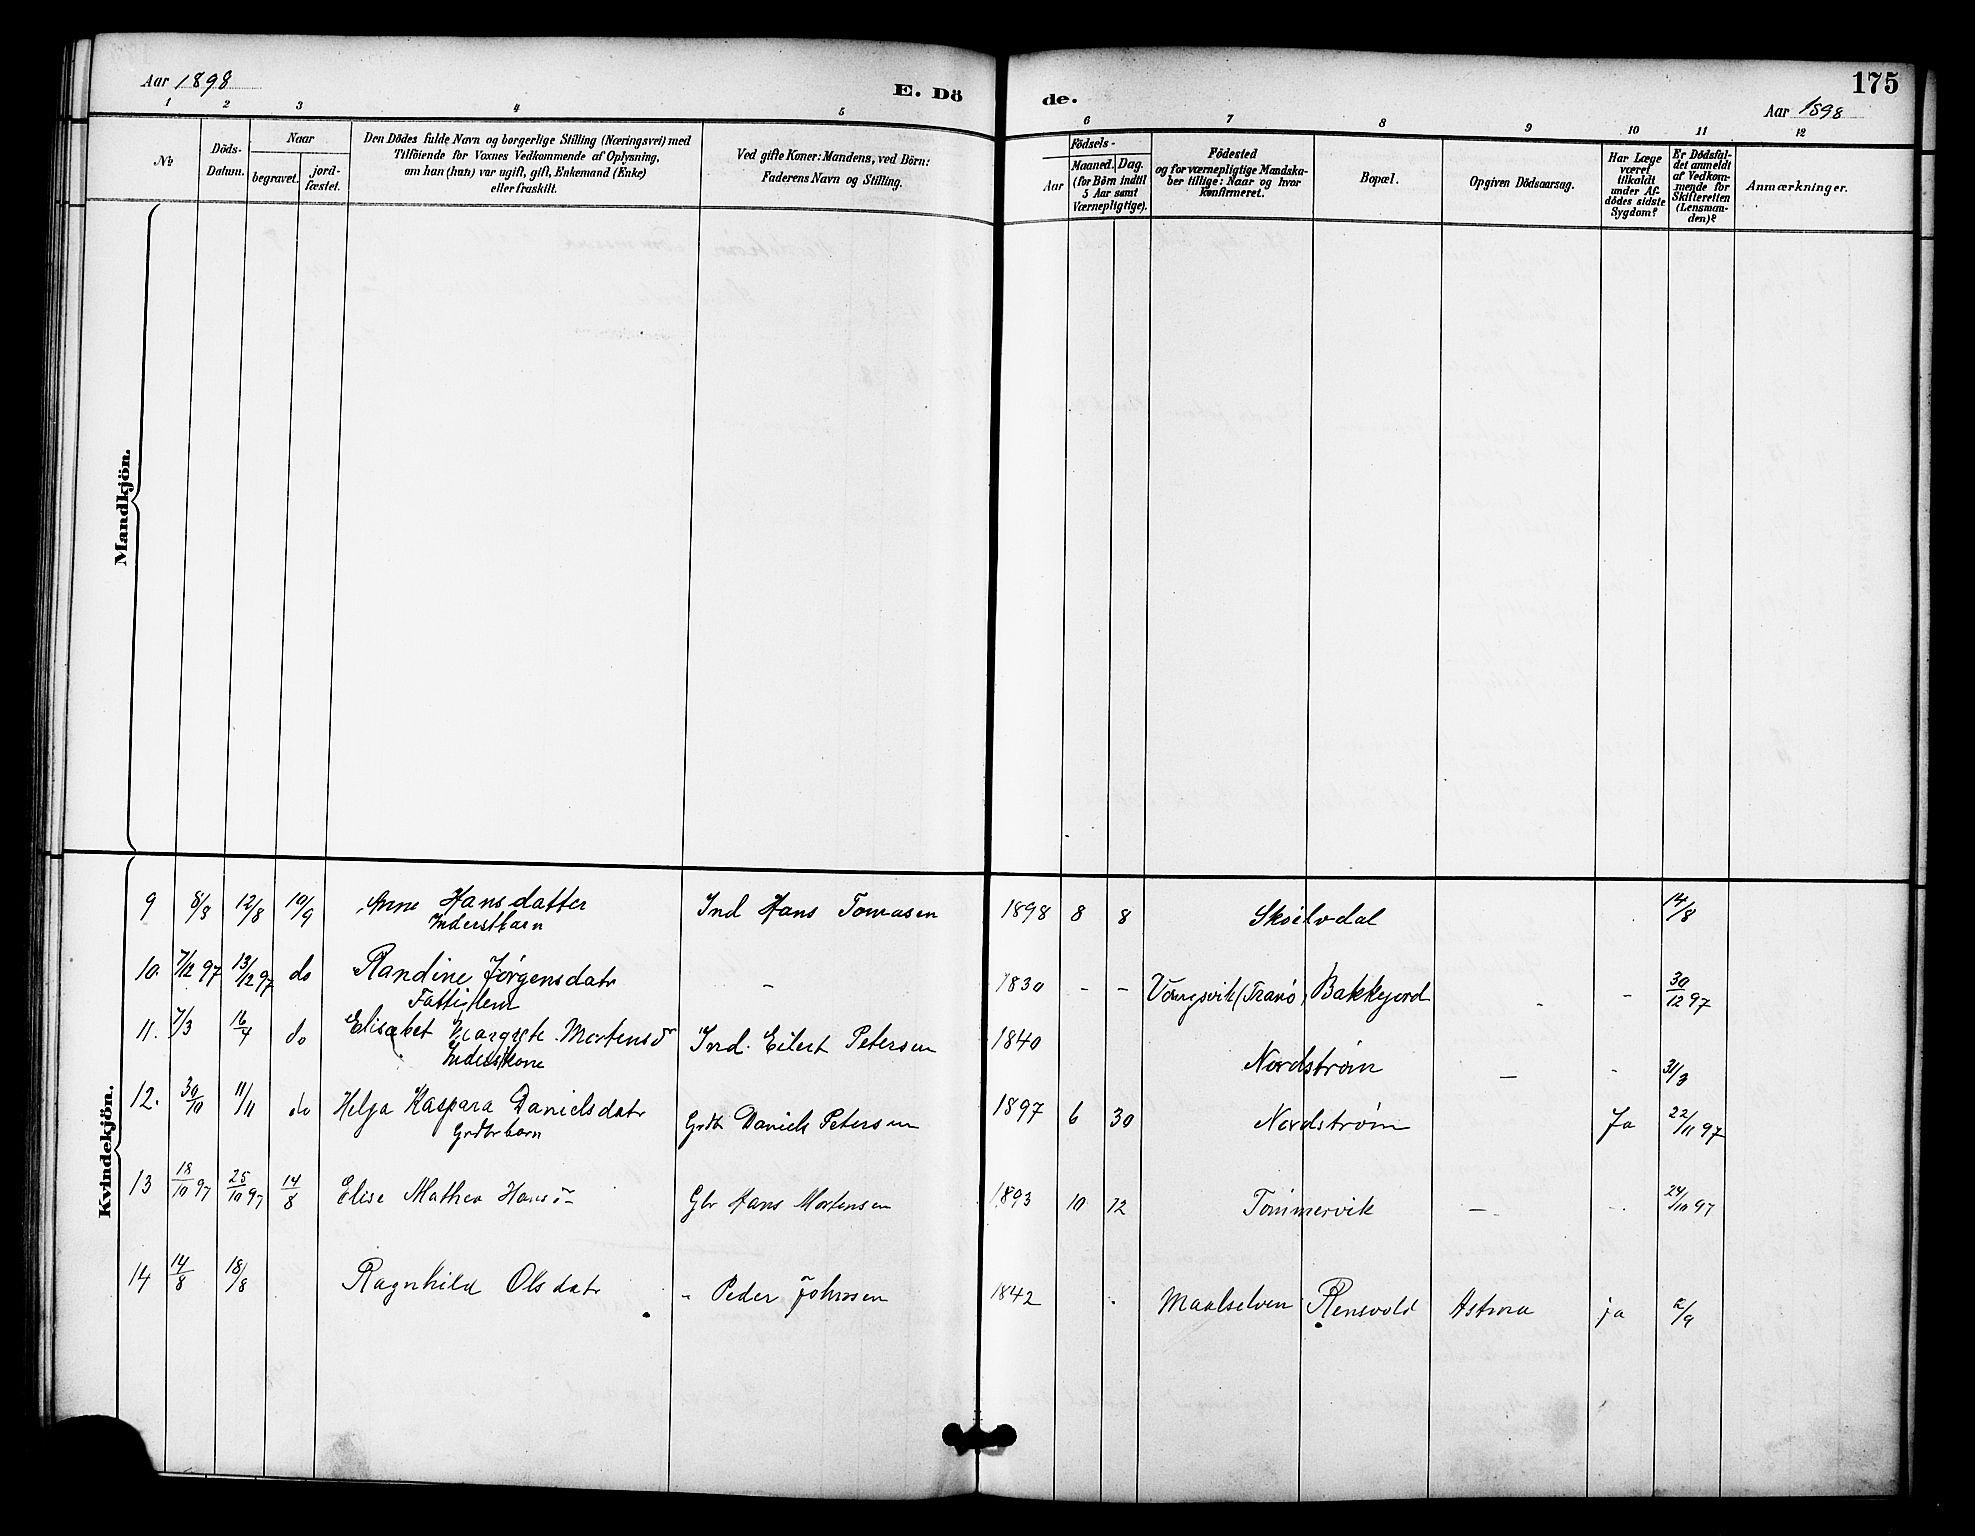 Aar 1898
E. Dö
de.
175
Aar 1898
1 2 3 4 5 6 7 8 9 10 11 12
No
Döds-
Datum.
Naar
begravet.
jord-
fæstet.
Den Dödes fulde Navn og borgerlige Stilling (Næringsvei) med
Tilföiende for Voxnes Vedkommende af Oplysning,
om han (hun) var ugift, gift, Enkemand (Enke)
eller fraskilt.
Ved gifte Koner: Mandens, ved Börn:
Faderens Navn og Stilling.
Födsels-
Aar
Maaned. Dag.
(for Börn indtil
5 Aar samt
Værnepligtige).
Födested
og for værnepligtige Mandska-
ber tillige: Naar og hvor
konfirmeret.
Bopæl.
Opgiven Dödsaarsag.
Har Læge
været
tilkaldt
under Af-
dödes sidste
Sygdom?
Er Dödsfal-
det anmeldt
af Vedkom-
mende for
Skifteretten
(Lensman-
den)?
Anmærkninger.
Mandkjön.
Kvindekjön.
9 8/8 12/8 10/9 Anne Hansdatter Ind Hans Tomasen 1898 8 8 Skoelvdal 14/8
Inderstbarn
10. 7/12 97 13/12 97 do Randine Jørgensdatr - 1830 - - Vangsvik (Tranö) Bakkejord - - 30/12 97
Fattiglem
11. 7/3 16/4 do Elisabet Margrete Mortensd Ind. Eilert Petersen 1840 Nordstrøm - - 31/3
Inderstkone
12. 30/10 11/11 do Helga Kaspara Danielsdatr Grdbr Daniel Petersen 1897 6 30 Nordstrøm Ja 22/11 97
Grdbrbarn
13 18/10 97 25/10 97 14/8 Elise Mathea Hansd Gbr Hans Mortensen 1893 10 12 Tömmervik - - 24/10 97
14 14/8 18/8 Ragnhild Olsdatr " Peder Johnsen 1842 Maalselven Rensvold Astma ja 2/9